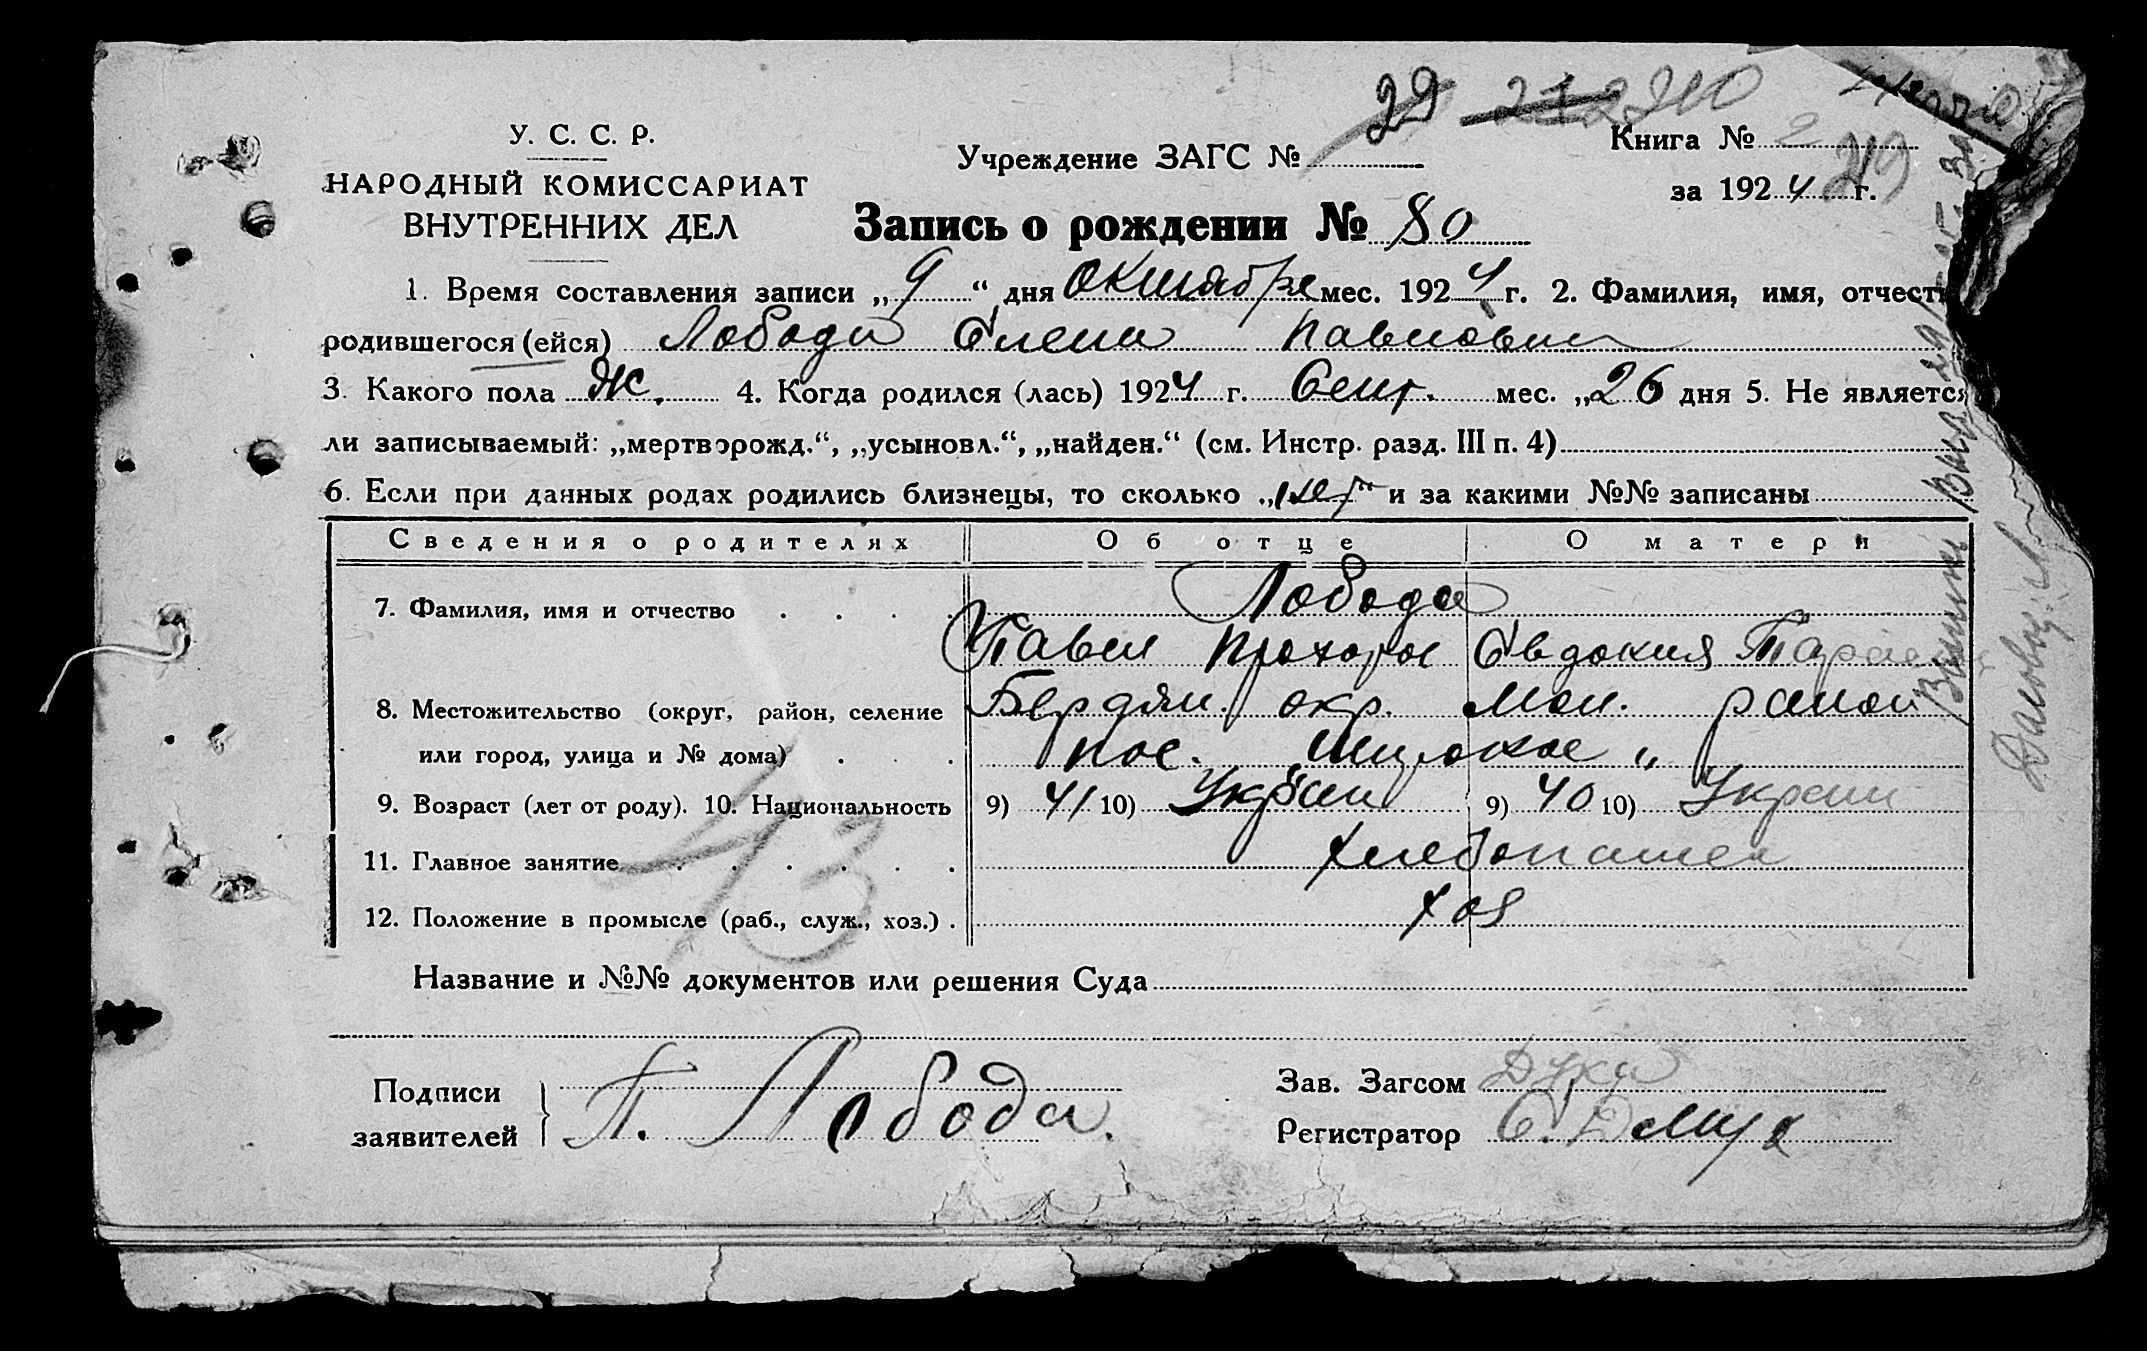 У. С. С. Р.
НАРОДНЫЙ КОМИССАРИАТ
ВНУТРЕННИХ ДЕЛ
29 212 2210
Учреждение ЗАГС №
Книга № 2
219
за 1924 г.
Запись о рождении № 80
1. Время составления записи „9“ дня Октября мес. 1924 г. 2. Фамилия, имя, отчест
родившегося (ейся) Лобода Елена Павловна
3. Какого пола Ж. 4. Когда родился (лась) 1924 г. Сент. мес. „26 дня 5. Не является
ли записываемый: „мертворожд.“, „усыновл.“, „найден.“ (см. Инстр. разд. III п. 4)
6. Если при данных родах родились близнецы, то сколько „нет“ и за какими №№ записаны
Сведения о родителях Об отце О матери
7. Фамилия, имя и отчество . . . . Лобода
Павел Прохоров Евдокия Тарасов
8. Местожительство (округ, район, селение Бердян. окр. Мол. район
или город, улица и № дома) . . . пос. „Широкое“
9. Возраст (лет от роду). 10. Национальность 9) 41 10) Украин 9) 40 10) Украин
11. Главное занятие . . . . . . хлебопашец
12. Положение в промысле (раб., служ., хоз.) . хоз
13
Название и №№ документов или решения Суда
Подписи
заявителей } П. Лобода.
Зав. Загсом Дука
Регистратор